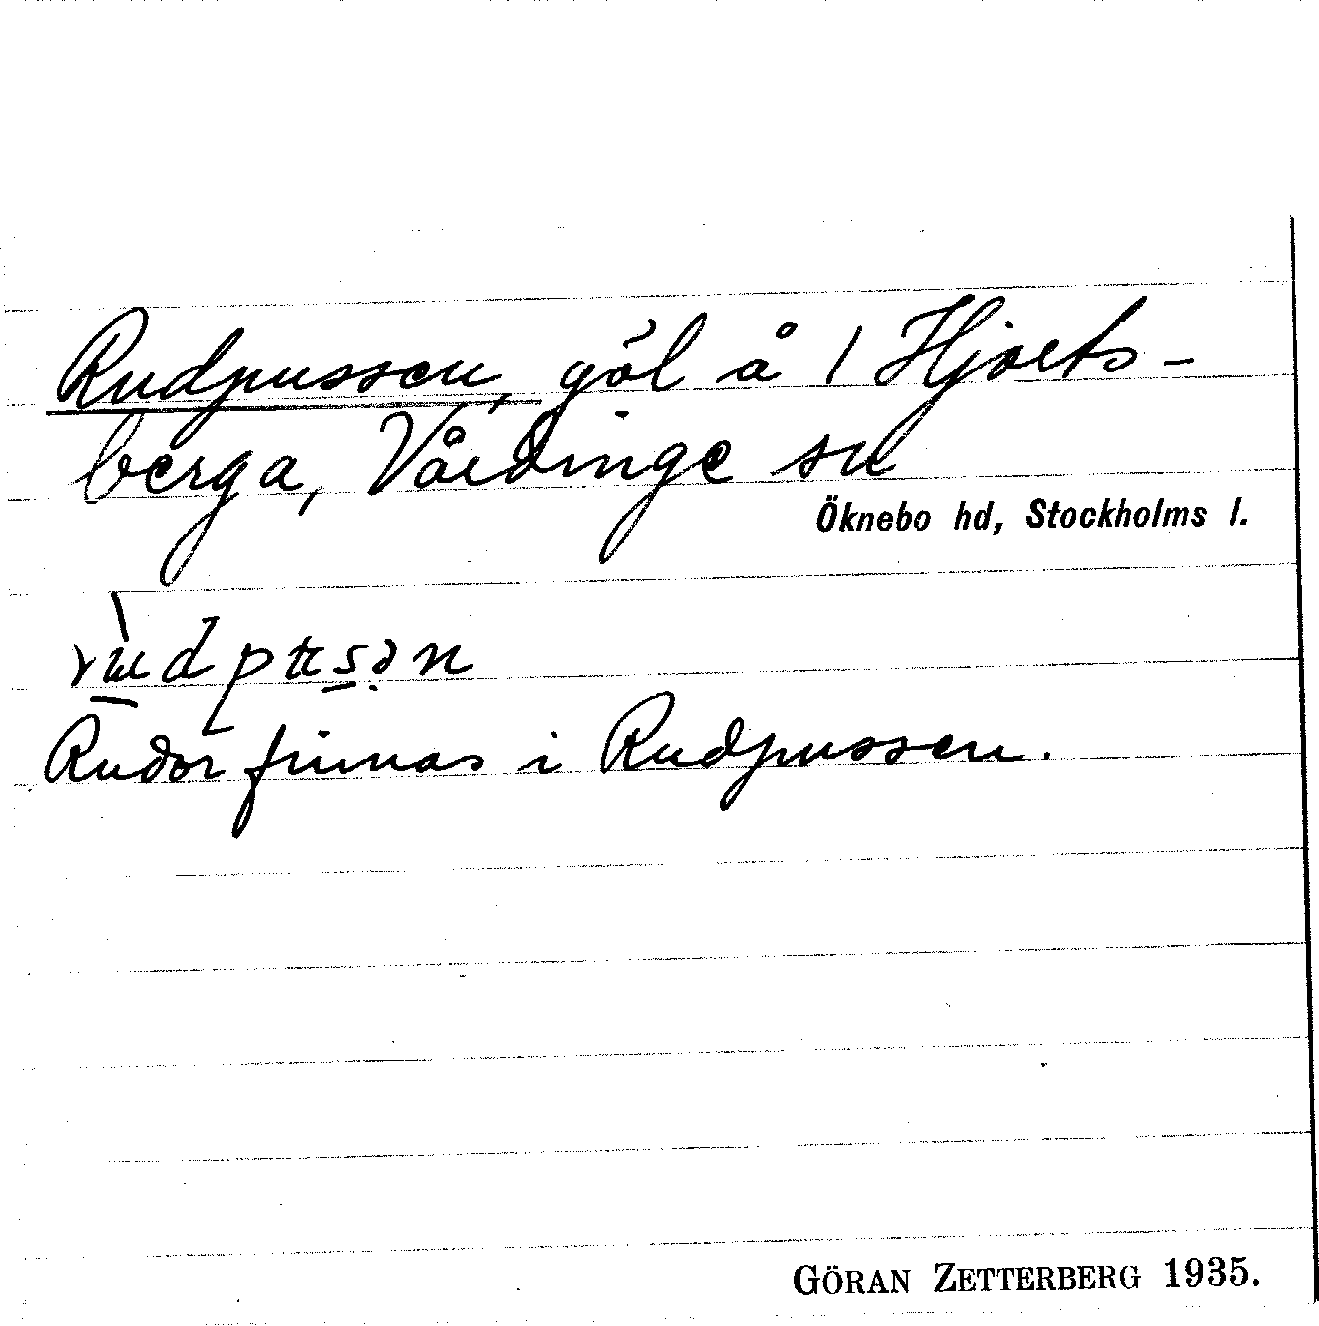 Rudpussen, göl å 1 Hjorts-
berga, Vårdinge sn
Öknebo hd, Stockholms l.
Rudor finnas i Rudpussen.
GÖRAN ZETTERBERG 1935.